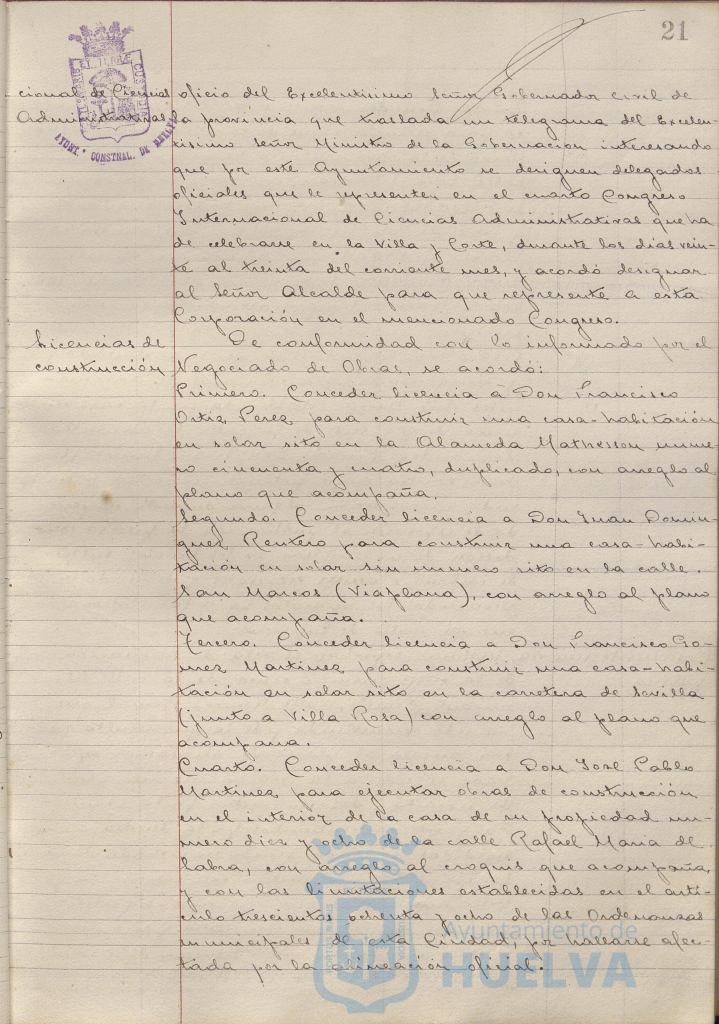 21
PORTUS MARIS ET TERRAE CUSTODIA
AYUNT.º CONSTNAL. DE HUELVA
cional de Ciencias
Administrativas
oficio del Excelentisimo Señor Gobernador civil de
la provincia que traslada un telegrama del Excelen-
tisimo Señor Ministro de la Gobernación interesando
que por este Ayuntamiento se designen delegados
oficiales que le representen en el cuarto Congreso
Internacional de Ciencias Administrativas que ha
de celebrarse en la Villa y Corte, durante los dias vein-
te al treinta del corriente mes, y acordó designar
al Señor Alcalde para que represente a esta
Corporación en el mencionado Congreso.
Licencias de
construcción
De conformidad con lo informado por el
Negociado de Obras, se acordó:
Primero. Conceder licencia à Don Francisco
Ortiz Perez para construir una casa-habitación
en solar sito en la Alameda Mathesson nume-
ro cincuenta y cuatro, duplicado, con arreglo al
plano que acompaña.
Segundo. Conceder licencia a Don Juan Domin-
guez Rentero para construir una casa-habi-
tación en solar sin numero sito en la calle
San Marcos (Viaplana), con arreglo al plano
que acompaña.
Tercero. Conceder licencia a Don Francisco Go-
mez Martinez para construir una casa-habi-
tación en solar sito en la carretera de Sevilla
(junto a Villa Rosa) con arreglo al plano que
acompana.
Cuarto. Conceder licencia a Don José Pablo
Martinez para ejecutar obras de construcción
en el interior de la casa de su propiedad nu-
mero diez y ocho de la calle Rafael Maria de
Labra, con arreglo al croquis que acompaña,
y con las limitaciones establecidas en el arti-
culo trescientos ochenta y ocho de las Ordenanzas
municipales de esta Ciudad, por hallarse afec-
tada por la alineación oficial.
Ayuntamiento de
HUELVA